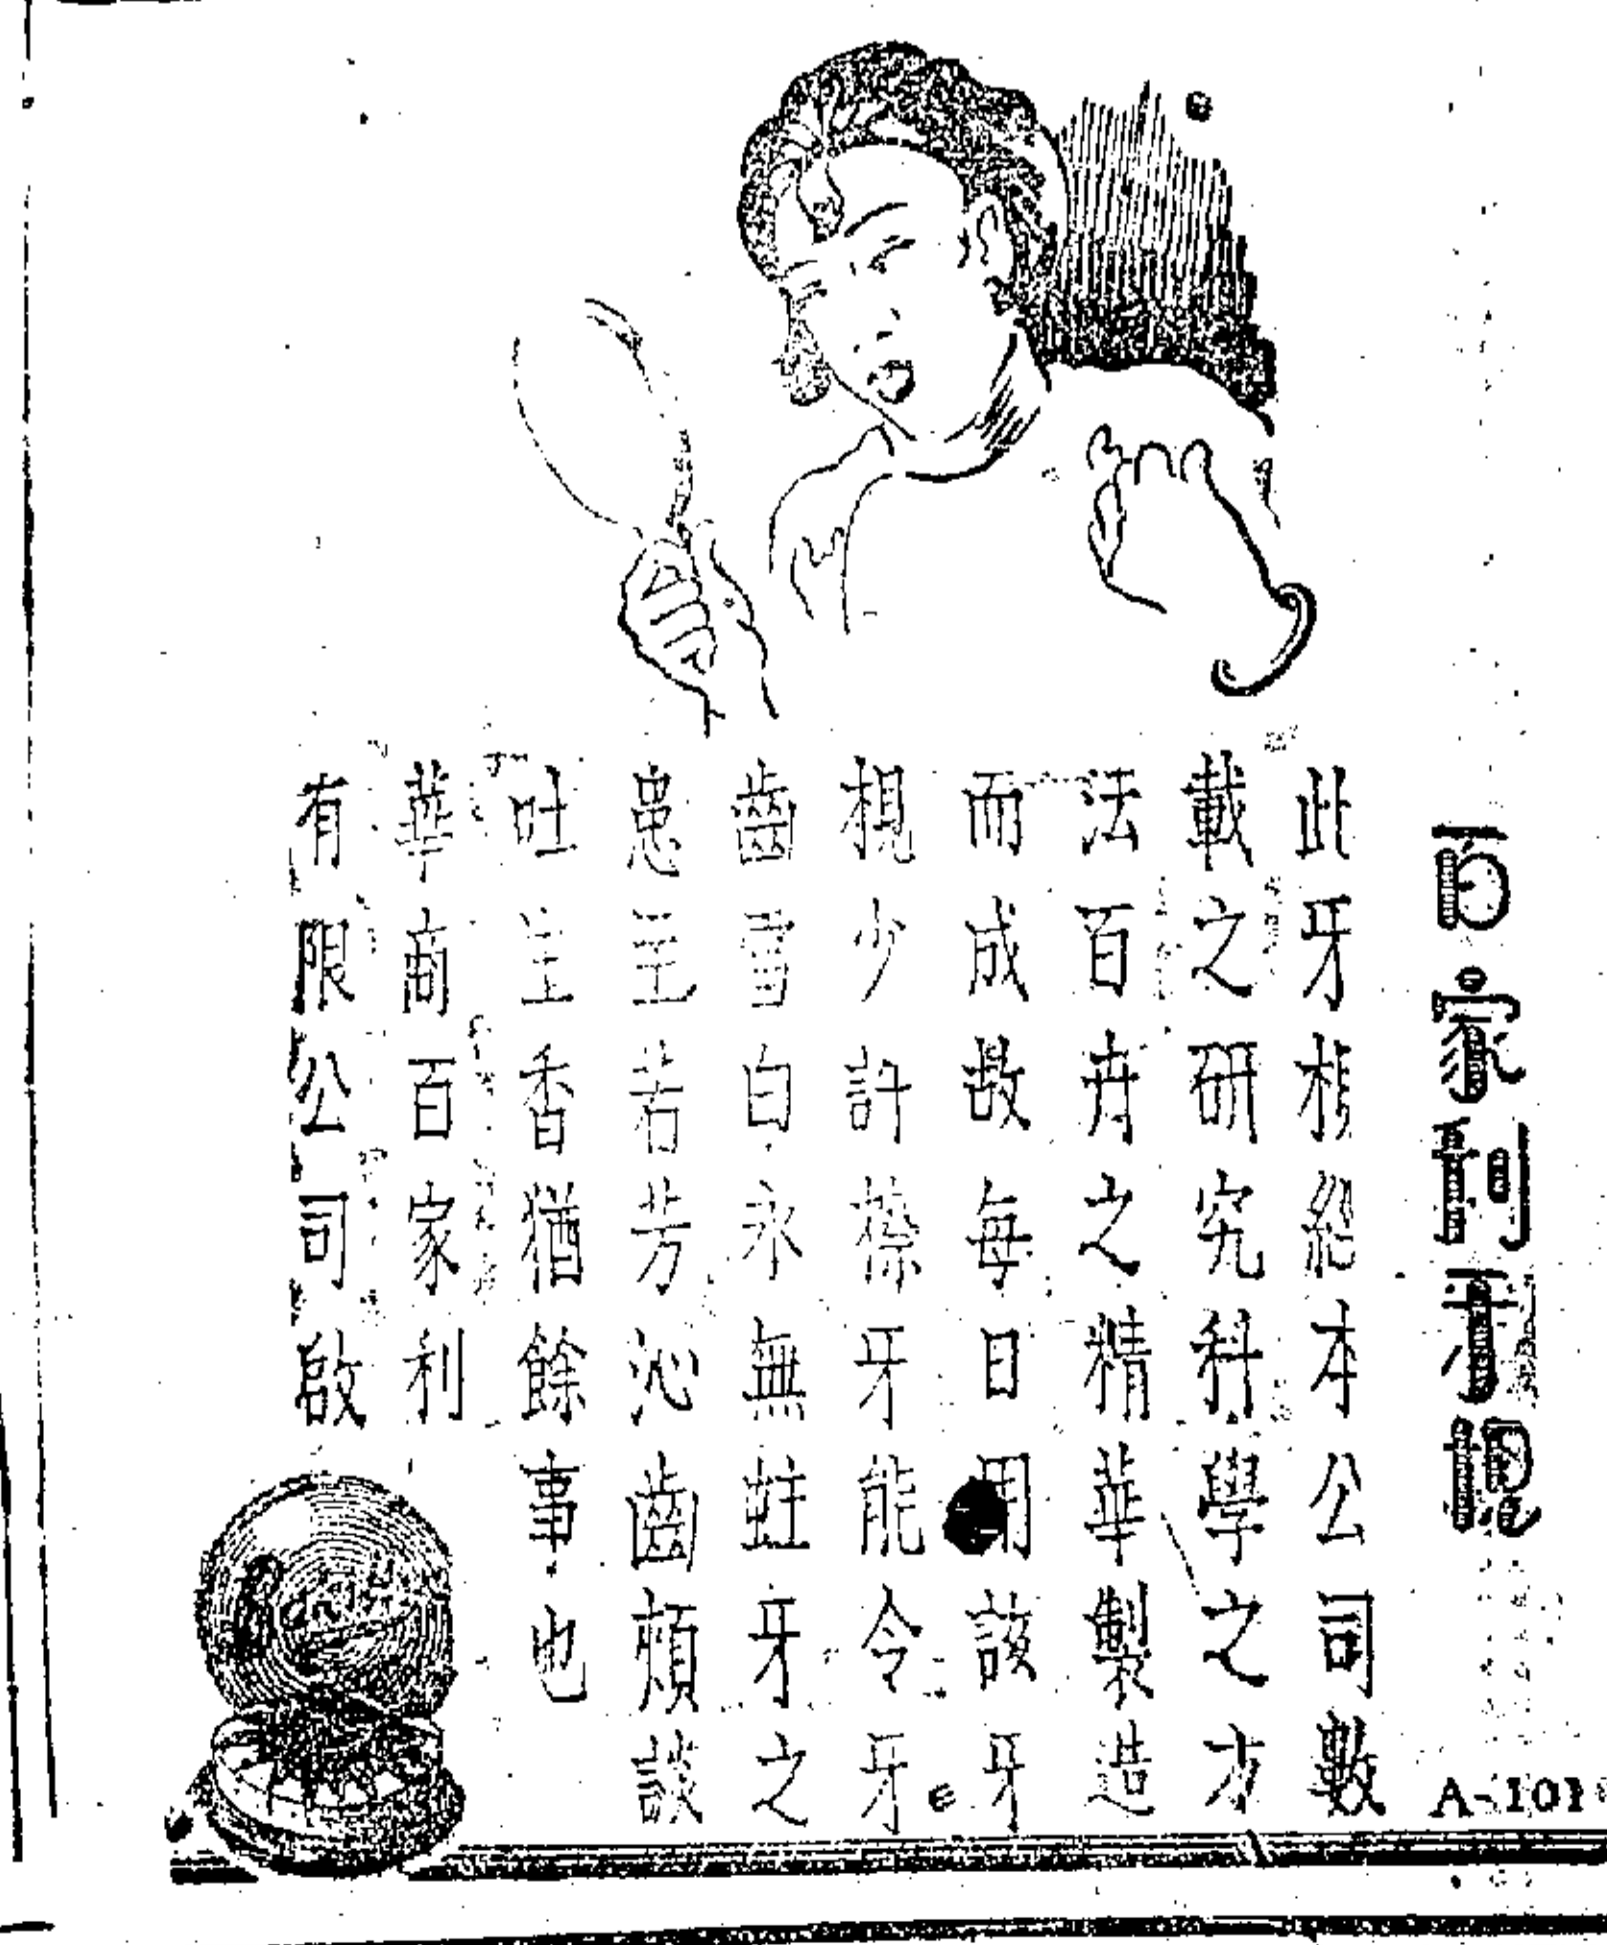 百家利牙梘
此牙梘經本公司數
載之研究科學之方
法百卉之精華製造
而成故每日用該牙
梘少許擦牙能令牙
齒雪白永無蛀牙之
患至若芳沁齒頰談
吐生香猶餘事也
華商百家利
有限公司啟
A-101